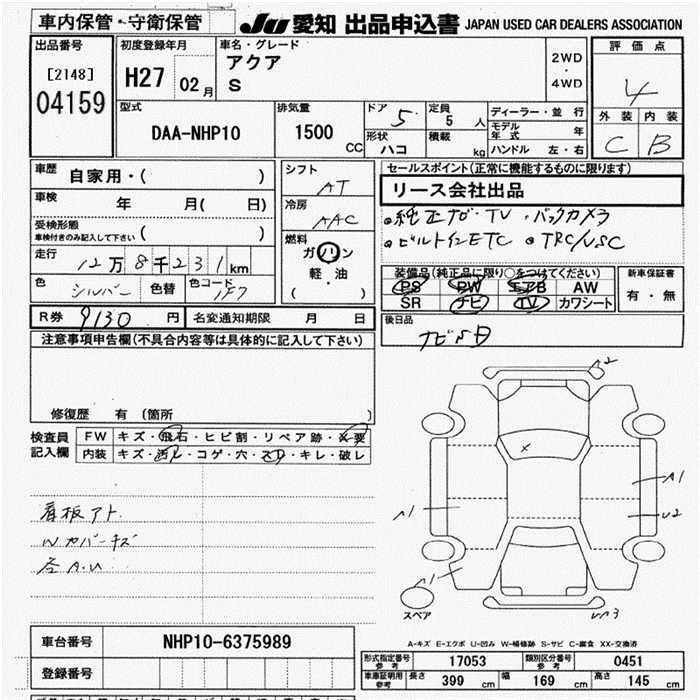 車内保管・守衛保管
JU 愛知 出品申込書 JAPAN USED CAR DEALERS ASSOCIATION
出品番号
[2148]
04159
初度登録年月
H27 02月
車名・グレード
アクア
S
2WD
・
4WD
評価点
4
外装 内装
C B
型式
DAA-NHP10
排気量
1500 CC
ドア 5
形状 ハコ
定員 5 人
積載 kg
ディーラー・並行
モデル年式 年
ハンドル 左・右
車歴 自家用・( )
車検 年 月( 日)
受検形態
車検付きのみ記入して下さい ( )
走行 12万8千231km
色 シルバー 色替 色コード 1F7
シフト AT
冷房 AAC
燃料
ガソリン
軽・油
( )
セールスポイント(正常に機能するものに限ります)
リース会社出品
●純正ナビ・TV・バックカメラ
●ビルトインETC ●TRC/VSC
装備品(純正品に限り○をつけてください)
PS PW エアB AW
SR ナビ TV カワシート
新車保証書
有・無
R券 9130 円 名変通知期限 月 日
後日品
注意事項申告欄(不具合内容等は具体的に記入して下さい)
修復歴 有 (箇所 )
検査員記入欄
FW キズ・飛石・ヒビ割・リペア跡・×要
内装 キズ・汚れ・コゲ・穴・スリ・キレ・破レ
看板アト
Wカバーキズ
A2
A1
U2
A1
A1
スペア
A-キズ E-エクボ U-凹み W-補修跡 S-サビ C-腐食 XX-交換済
車台番号 NHP10-6375989
登録番号
形式指定番号参考 17053 類別区分番号参考 0451
車庫証明用参考 長さ 399 cm 幅 169 cm 高さ 145 cm